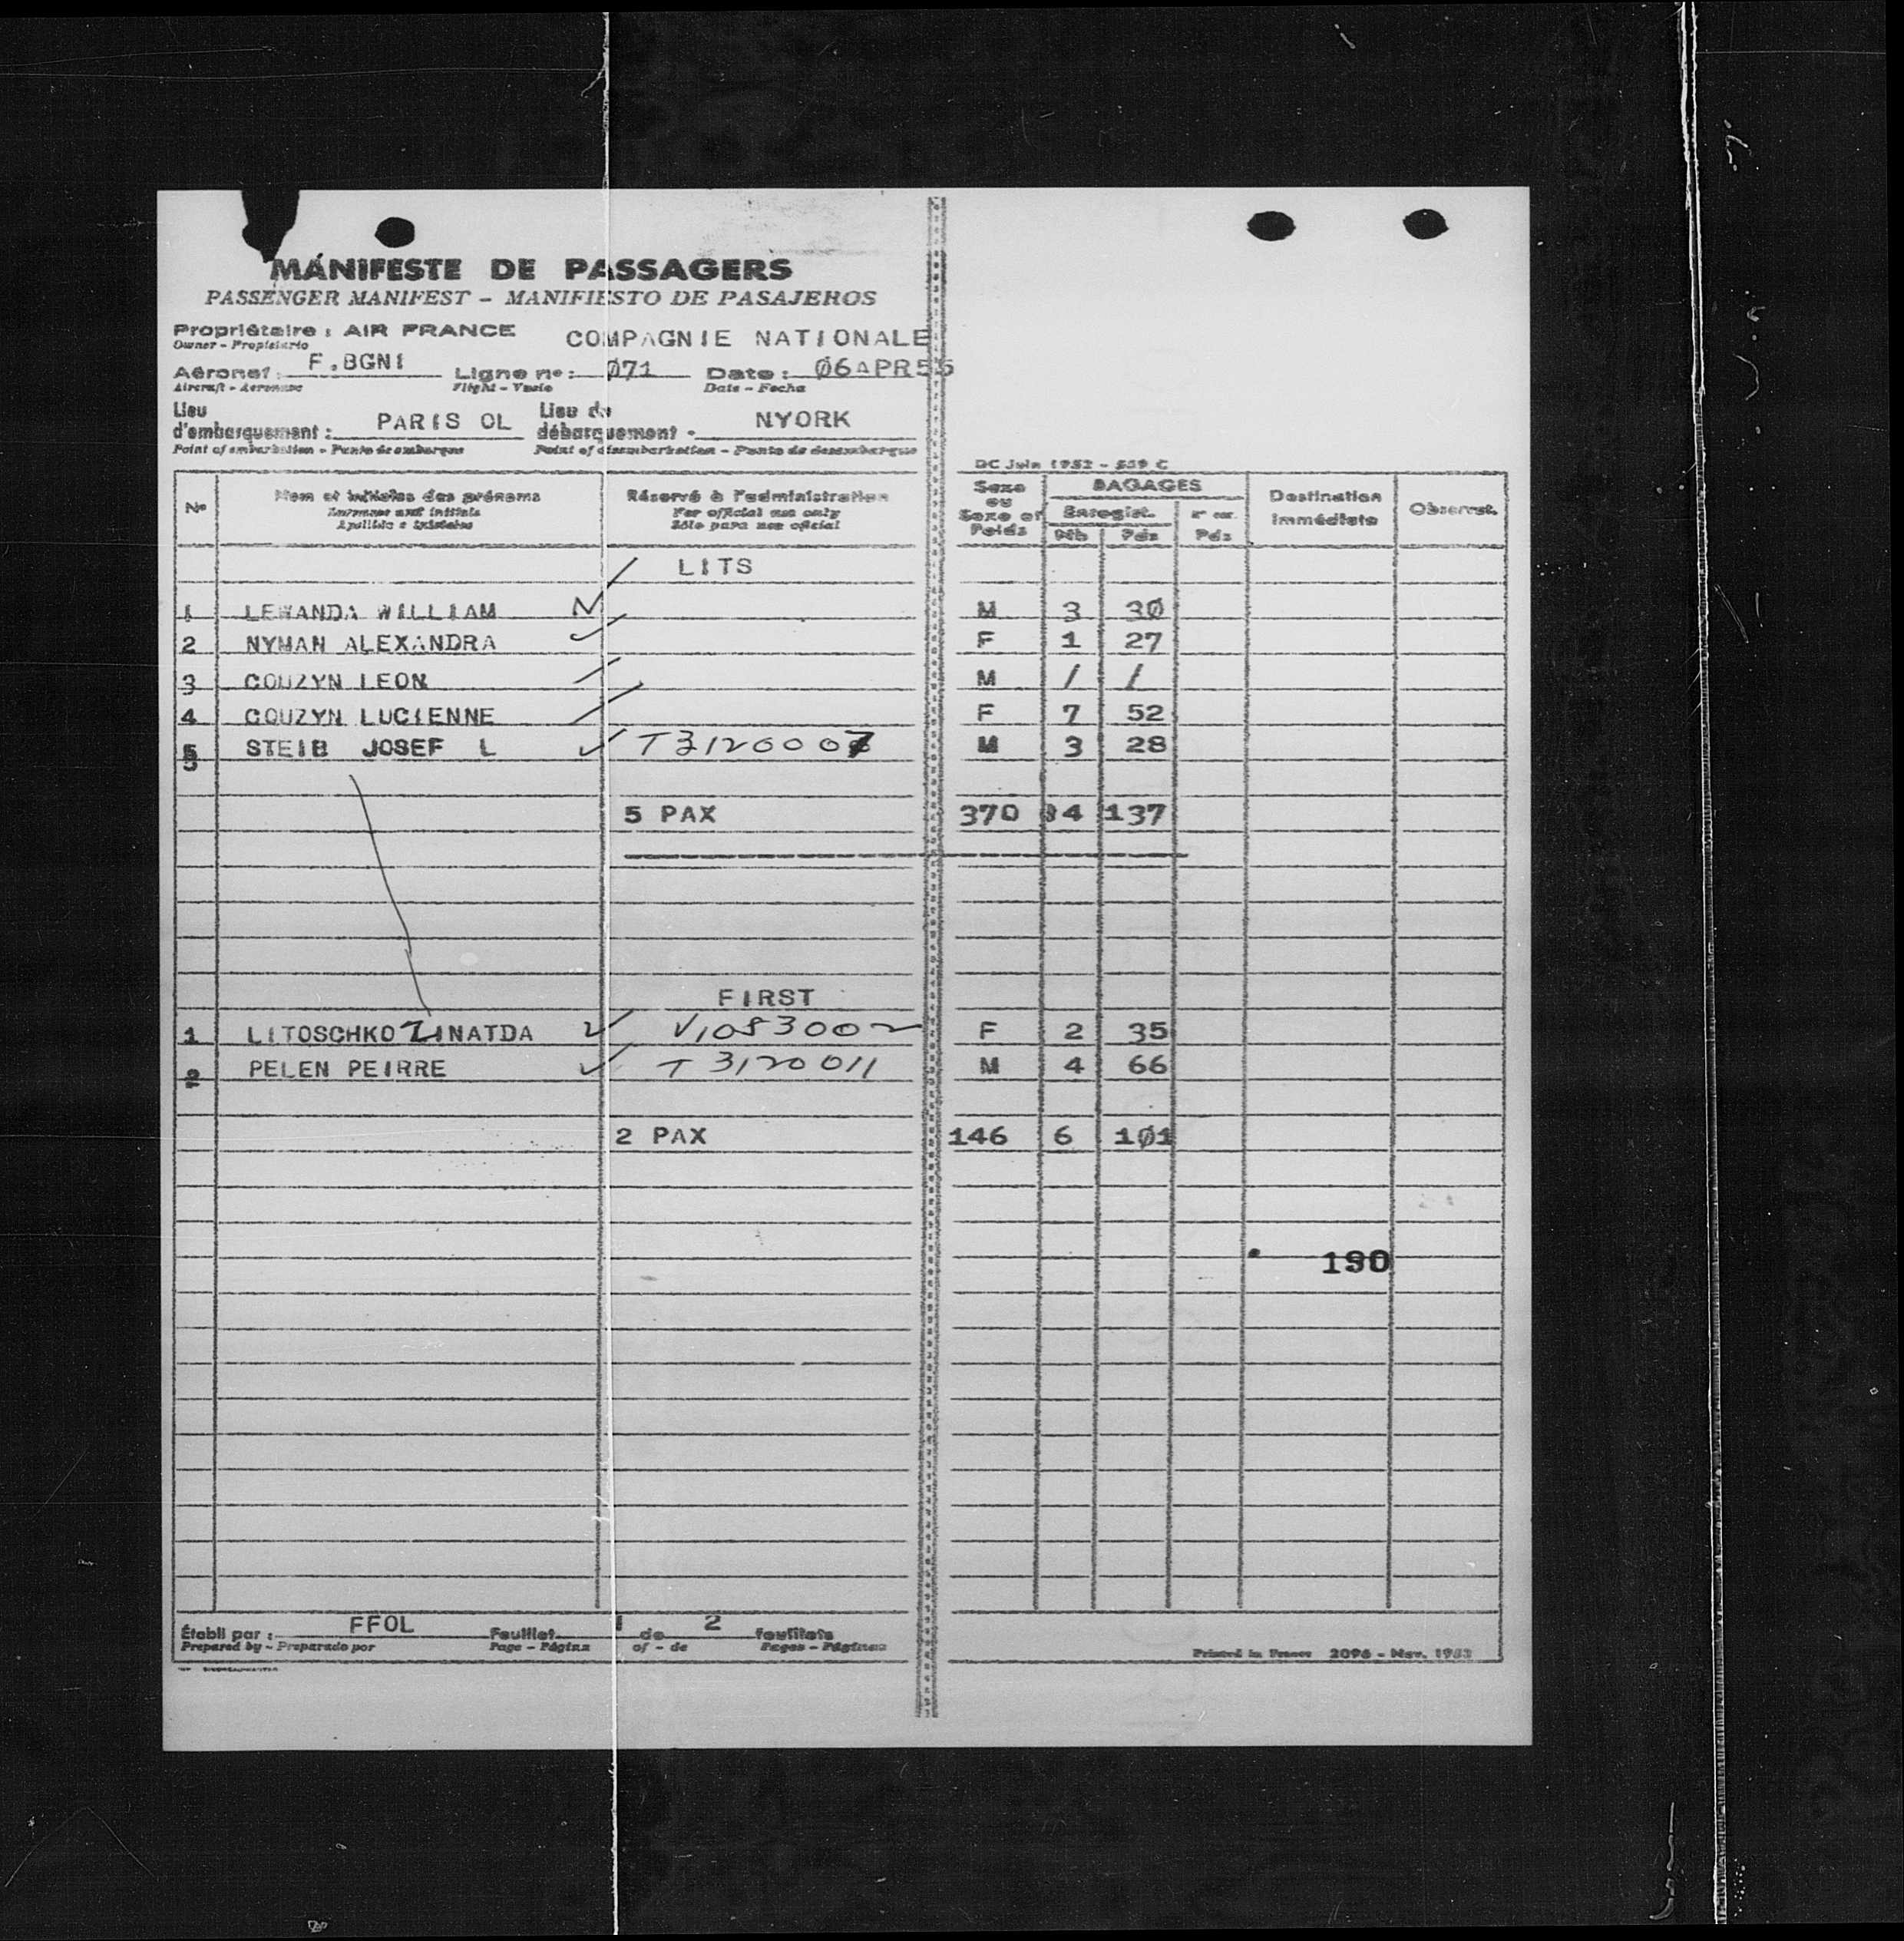 MANIFESTE DE PASSAGERS
PASSENGER MANIFEST – MANIFIESTO DE PASAJEROS
Propriétaire : AIR FRANCE COMPAGNIE NATIONALE
Owner – Propietario
Aéronef : F.BGNI Ligne nº : Ø71 Date : Ø6APR55
Aircraft – Aeronave Flight – Vuelo Date – Fecha
Lieu d'embarquement : PARIS OL Lieu de débarquement – NYORK
Point of embarkation – Punto de embarque Point of disembarkation – Punto de desembarque
DC Juin 1952 – 559 C
Nº Nom et initiales des prénoms Réservé à l'administration Sexe ou Sexe et Poids BAGAGES Destination immédiate Observat.
Surname and initials For official use only Enregist.
Apellido e iniciales Sólo para uso oficial Nb Pds Pds
LITS
1 LEWANDA WILLIAM M 3 3Ø
2 NYMAN ALEXANDRA F 1 27
3 GOUZYN LEON M / /
4 GOUZYN LUCIENNE F 7 52
5 STEIB JOSEF L T3120007 M 3 28
5 PAX 370 14 137
FIRST
1 LITOSCHKO ZINATDA V1083002 F 2 35
2 PELEN PEIRRE T 3120011 M 4 66
2 PAX 146 6 1Ø1
190
Établi par : FFOL Feuillet 1 de 2 feuillets
Prepared by – Preparado por Page – Página of – de Pages – Páginas
Printed in France 2096 – Nov. 1953